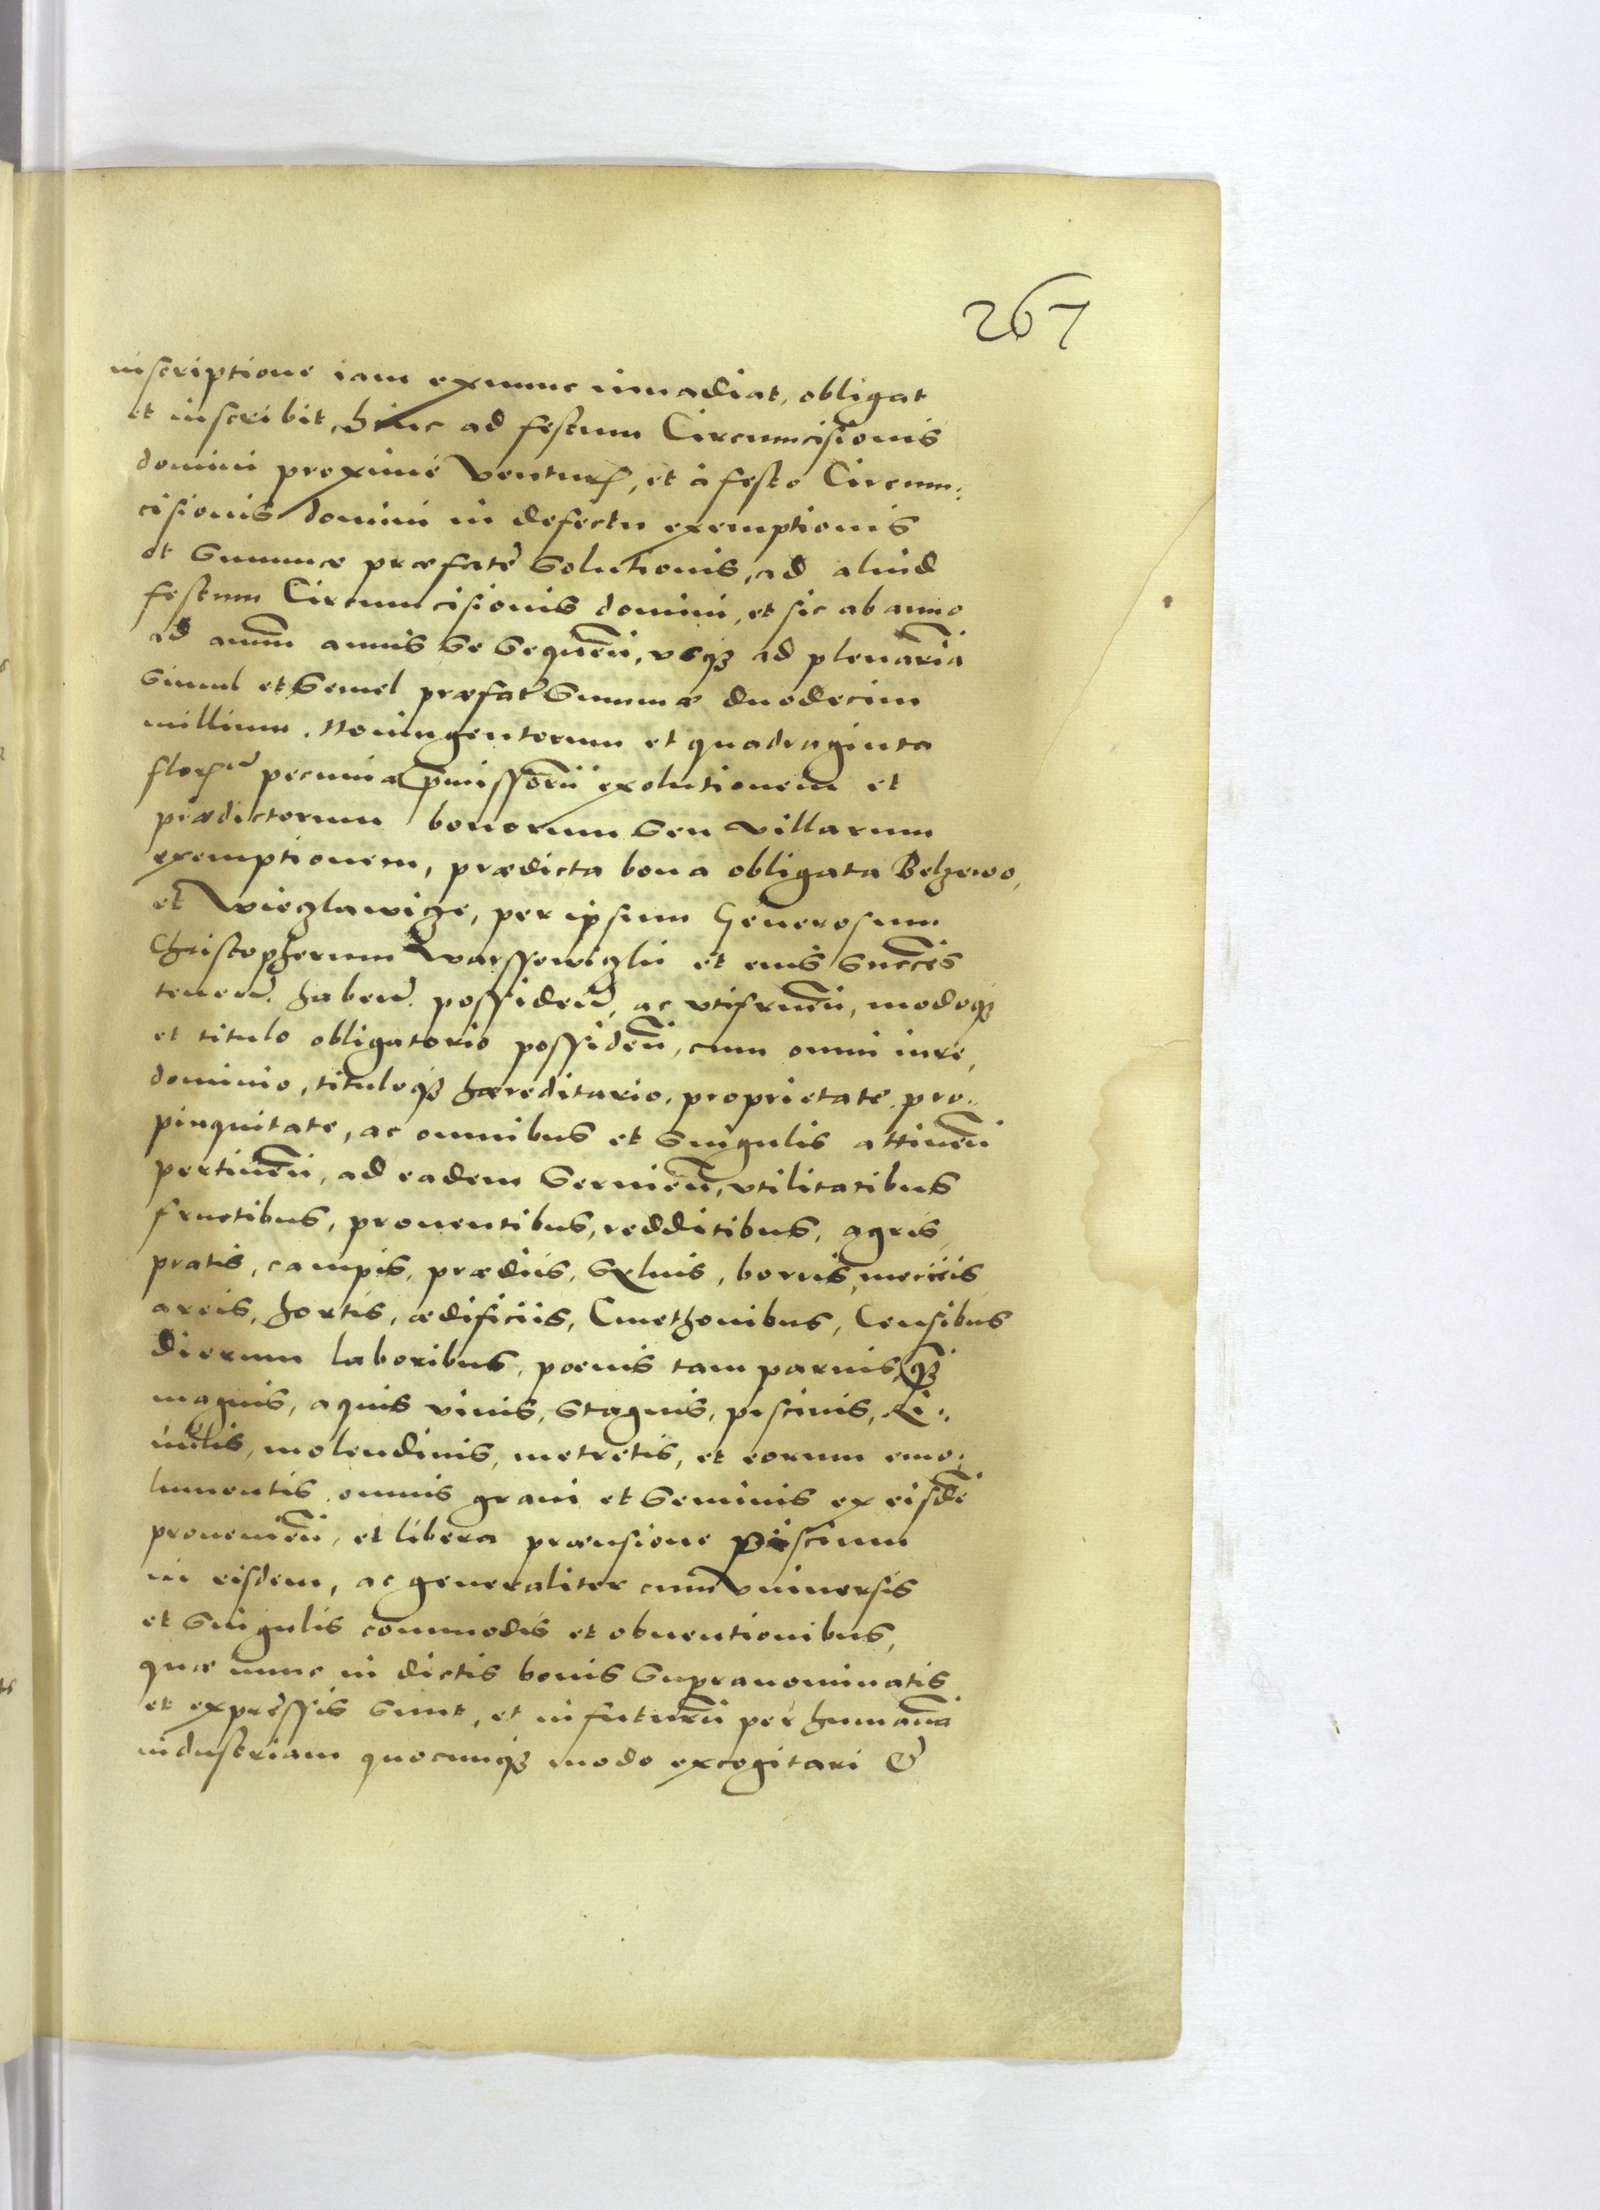 267
inscriptione iam exnunc inuadiat, obligat
et inscribit, hinc ad festum Circumcisionis
domini proximè ventur, et à festo Circum:
cisionis domini in defectu exemptionis
et summæ præfatę solutionis, ad aliud
festum Circumcisionis domini, et sic ab anno
ad annū annis se sequeñ, vsq ad plenariā
simul et semel præfat summæ duodecim
millium Noningentorum et quadraginta
flor pecuniæ p̄missorū exolutionem et
prædictorum bonorum seu villarum
exemptionem, prædicta bona obligata Belzewo,
et Wiezlawize, per ipsum Generosum
Christopherum Warssewizki et eius succēs
teneñ. habeñ. possideñ, ac vtifrueñ, modoq
et titulo obligatorio possideñ, cum omni iure,
dominio, tituloq hæreditario, proprietate, pro:
pinquitate, ac omnibus et singulis attineñ
pertineñ, ad eadem seruieñ, vtilitatibus
fructibus, prouentibus, redditibus, agris,
pratis, campis, prædiis, syluis, borris, mericis
areis, hortis, ædificiis, Cmethonibus, Censibus
dierum laboribus, poenis tam paruis, q̄
magnis, aquis viuis, stagnis, piscinis, Ri:
uulis, molendinis, metretis, et eorum emo:
lumentis, omnis grani et seminis ex eisdē
prouenieñ, et libera præensione piscium
in eisdem, ac generaliter cum vniuersis
et singulis commodis et obuentionibus,
quæ nunc in dictis bonis supranominatis
et expressis sunt, et in futurū per humanā
industriam quocunq modo excogitari &